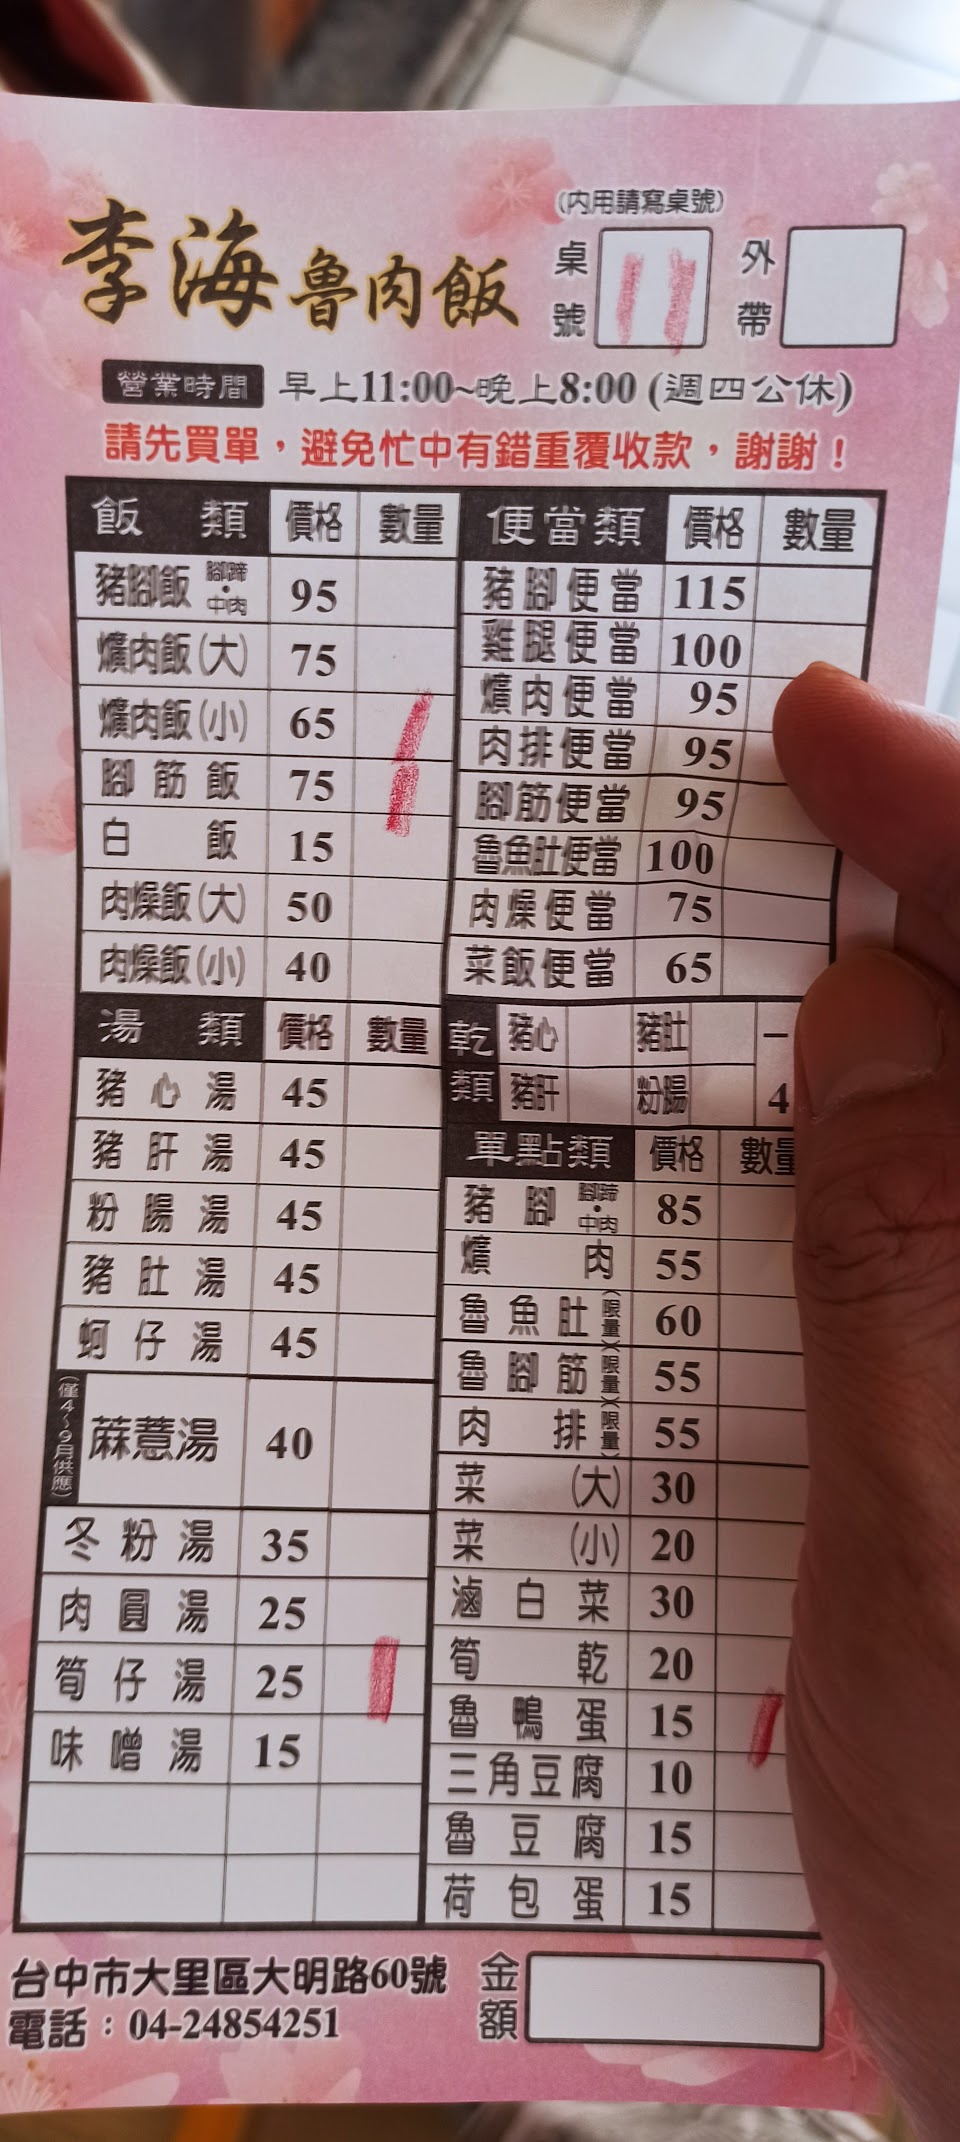 (內用請寫桌號)
李海魯肉飯
桌號 11 外帶
營業時間 早上11:00~晚上8:00 (週四公休)
請先買單，避免忙中有錯重覆收款，謝謝！
飯類 價格 數量
豬腳飯 腳蹄・中肉 95
爌肉飯(大) 75
爌肉飯(小) 65 1
腳筋飯 75 1
白飯 15
肉燥飯(大) 50
肉燥飯(小) 40
湯類 價格 數量
豬心湯 45
豬肝湯 45
粉腸湯 45
豬肚湯 45
蚵仔湯 45
(僅4~9月供應) 蔴薏湯 40
冬粉湯 35
肉圓湯 25
筍仔湯 25 1
味噌湯 15
便當類 價格 數量
豬腳便當 115
雞腿便當 100
爌肉便當 95
肉排便當 95
腳筋便當 95
魯魚肚便當 100
肉燥便當 75
菜飯便當 65
乾類 豬心 豬肚 一
豬肝 粉腸 4
單點類 價格 數量
豬腳 腳蹄・中肉 85
爌肉 55
魯魚肚(限量) 60
魯腳筋(限量) 55
肉排(限量) 55
菜(大) 30
菜(小) 20
滷白菜 30
筍乾 20
魯鴨蛋 15 1
三角豆腐 10
魯豆腐 15
荷包蛋 15
台中市大里區大明路60號
電話：04-24854251
金額